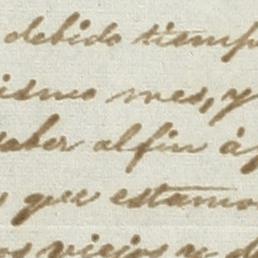 debido tiempo
ismo mes, y
saber al fin á
que estamo
os viejos y d